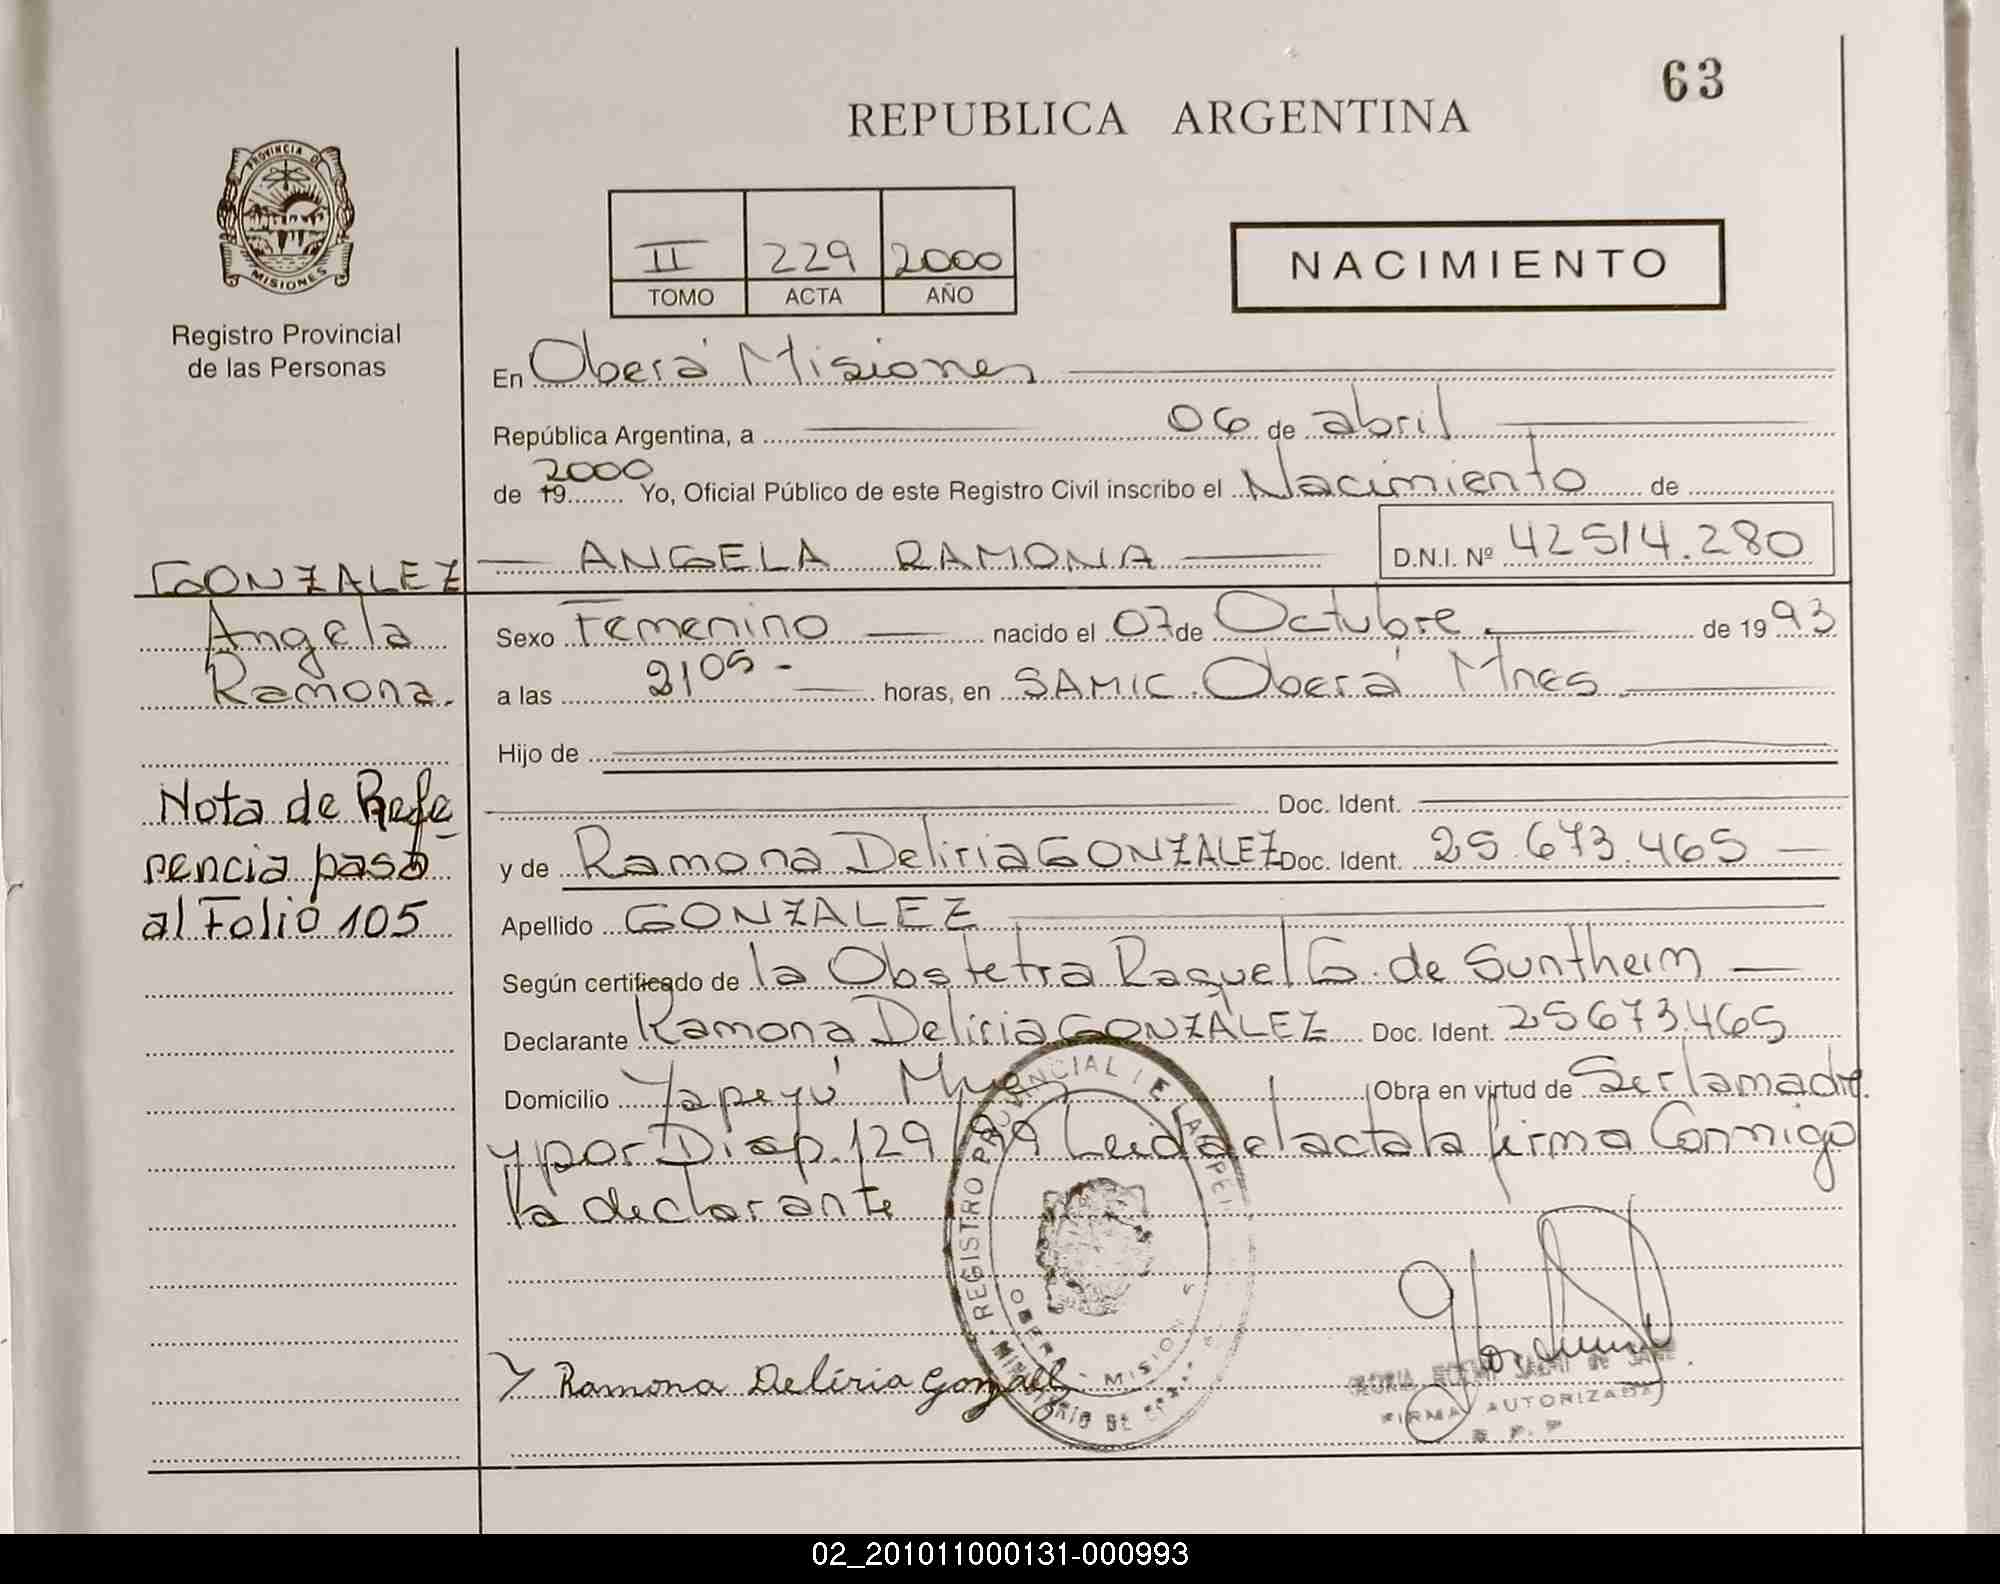 63
REPUBLICA ARGENTINA
PROVINCIA DE
MISIONES
Registro Provincial
de las Personas
II 229 2000
TOMO ACTA AÑO
NACIMIENTO
En Oberá Misiones
República Argentina, a 06 de abril
de 19 2000 Yo, Oficial Público de este Registro Civil inscribo el Nacimiento de
ANGELA RAMONA D.N.I. Nº 42514.280
GONZALEZ
Angela
Ramona.
Sexo Femenino nacido el 07 de Octubre de 19 93
a las 2105 - horas, en SAMIC Oberá Mnes
Hijo de
Doc. Ident.
y de Ramona Deliria GONZALEZ Doc. Ident. 25.673.465
Nota de Refe
rencia pasó
al Folio 105
Apellido GONZALEZ
Según certificado de la Obstetra Raquel G. de Suntheim
Declarante Ramona Deliria GONZALEZ Doc. Ident. 25673.465
Domicilio Yapeyú Mnes Obra en virtud de Ser la madre.
y por Disp. 129/99 Leida el acta la firma Conmigo
la declarante
REGISTRO PROVINCIAL DE LAS PER
OBERA - MISION
MINISTERIO DE
Ramona Deliria Gonzalez
FIRMA AUTORIZADA
02_201011000131-000993